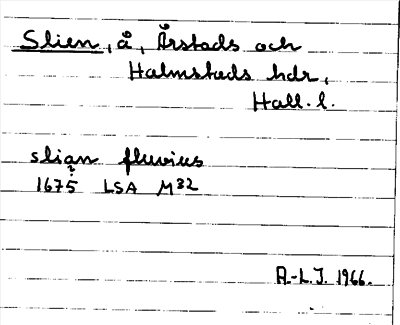 Slien, å, Årstads och
Halmstads hdr,
Hall. l.
slian fluvius
?
1675 LSA M32
A.-L.J. 1966.